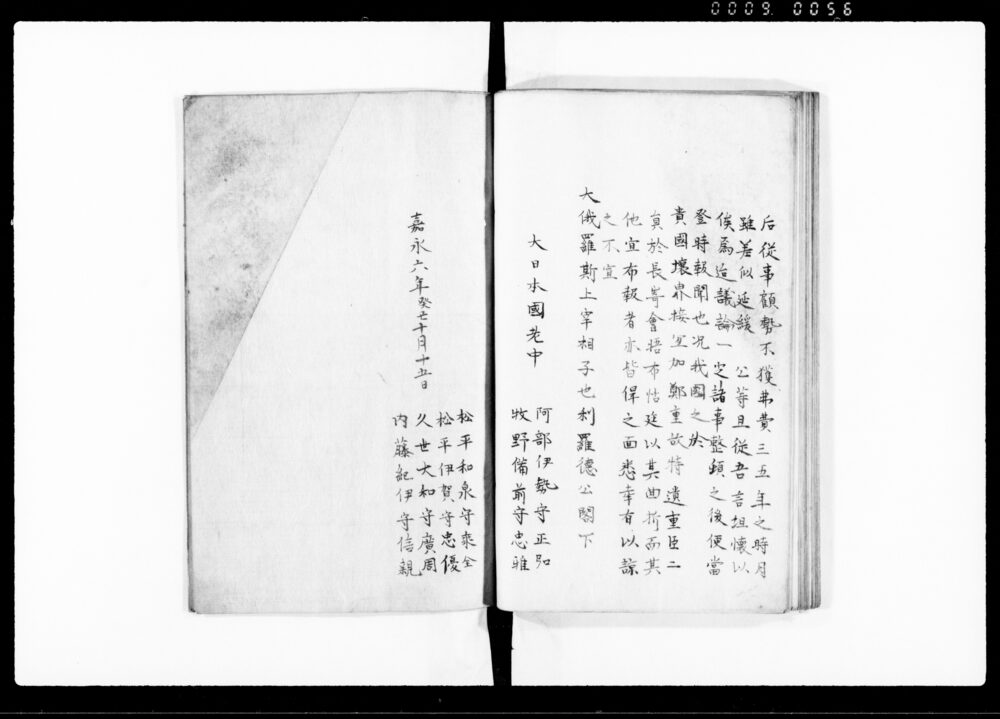 0009 0056
后從事顧勢不獲弗費三五年之時月
雖差似延緩 公等且從吾言坦懷以
俟爲迨議論一定諸事整頓之後便當
登時報聞也况我國之於
貴國壤界接坐加鄭重故特遺重臣二
員於長﨑會晤布恬廷以其曲折而其
他宜布報者亦皆俾之面悉幸有以諒
之不宣
大俄羅斯上宰相子也利羅德公閣下
大日本國老中
阿部伊勢守正弘
牧野備前守忠雅
松平和泉守乘全
松平伊賀守忠優
久世大和守廣周
内藤紀伊守信親
嘉永六年癸丑十月十五日